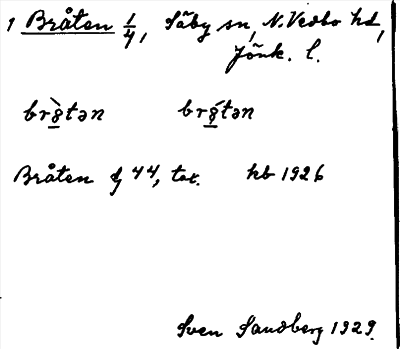 1 Bråten 1/4, Säby sn, N. Vedbo hd,
Jönk. l.
br8̀tən br8́tən
Bråten 44, tax. hb 1926
Sven Sandberg 1929.